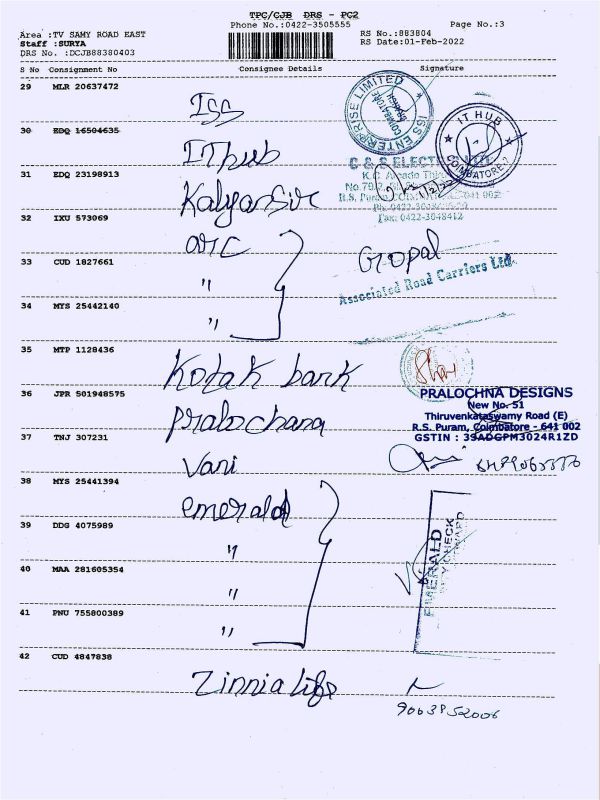 TPC/CJB DRS - PC2
Phone No.:0422-3505555
Page No.:3
Area :TV SAMY ROAD EAST
Staff :SURYA
DRS No. :DCJB88380403
RS No.:883804
RS Date:01-Feb-2022
S No Consignment No Consignee Details Signature
29 MLR 20637472
ISS
ISS ENTERPRISE LIMITED
COIMBATORE
30 EDQ 16504635
IT hub
IT HUB
COIMBATORE
31 EDQ 23198913
Kalyansir
C & S ELECTRIC LTD.
Fax: 0422-3048412
32 IXU 573069
arc
Gopal
Associated Road Carriers Ltd.
33 CUD 1827661
"
34 MYS 25442140
"
35 MTP 1128436
Kotak bank
36 JPR 501948575
Pralochana
PRALOCHNA DESIGNS
New No. 51
Thiruvenkataswamy Road (E)
R.S. Puram, Coimbatore - 641 002
GSTIN : 39ADGPM3024R1ZD
37 TNJ 307231
Vani
38 MYS 25441394
emerald
39 DDG 4075989
"
EMERALD
40 MAA 281605354
"
41 PNU 755800389
"
42 CUD 4847838
Zinnia life
9003952006